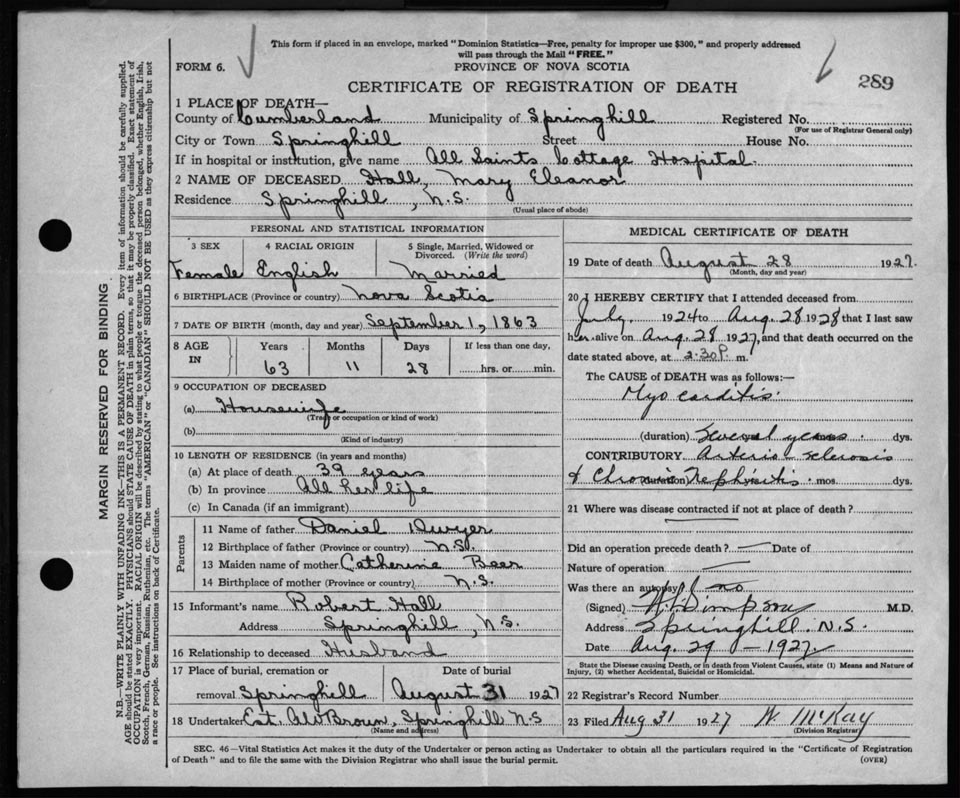 This form if placed in an envelope, marked "Dominion Statistics—Free, penalty for improper use $300," and properly addressed
will pass through the Mail "FREE."
FORM 6.
PROVINCE OF NOVA SCOTIA
CERTIFICATE OF REGISTRATION OF DEATH
289
1 PLACE OF DEATH—
County of Cumberland Municipality of Springhill Registered No.
(For use of Registrar General only)
City or Town Springhill Street House No.
If in hospital or institution, give name All Saints Cottage Hospital.
2 NAME OF DECEASED Hall, Mary Eleanor
Residence Springhill, N.S.
(Usual place of abode)
PERSONAL AND STATISTICAL INFORMATION
3 SEX 4 RACIAL ORIGIN 5 Single, Married, Widowed or
Divorced. (Write the word)
Female English Married
6 BIRTHPLACE (Province or country) Nova Scotia
7 DATE OF BIRTH (month, day and year) September 1, 1863
8 AGE IN Years Months Days If less than one day,
63 11 28 hrs. or min.
9 OCCUPATION OF DECEASED
(a) Housewife
(Trade or occupation or kind of work)
(b)
(Kind of industry)
10 LENGTH OF RESIDENCE (in years and months)
(a) At place of death 39 years
(b) In province All her life
(c) In Canada (if an immigrant)
Parents
11 Name of father Daniel Dwyer
12 Birthplace of father (Province or country) N.S.
13 Maiden name of mother Catherine Beer
14 Birthplace of mother (Province or country) N.S.
15 Informant's name Robert Hall
Address Springhill, N.S.
16 Relationship to deceased Husband
17 Place of burial, cremation or Date of burial
removal Springhill August 31 1927
18 Undertaker Est. AW Brown, Springhill N.S
(Name and address)
MEDICAL CERTIFICATE OF DEATH
19 Date of death August 28 1927.
(Month, day and year)
20 I HEREBY CERTIFY that I attended deceased from
July. 1924 to Aug. 28 1928 that I last saw
her alive on Aug. 28 1927, and that death occurred on the
date stated above, at 2.30 P. m.
The CAUSE of DEATH was as follows:—
Myo carditis.
(duration) Several years dys.
CONTRIBUTORY Arterio-sclerosis
& Chronic Nephritis (duration) mos. dys.
21 Where was disease contracted if not at place of death?
Did an operation precede death? — Date of
Nature of operation —
Was there an autopsy? no
(Signed) M.D.
Address Springhill. N.S.
Date Aug. 29 - 1927
State the Disease causing Death, or in death from Violent Causes, state (1) Means and Nature of
Injury, (2) whether Accidental, Suicidal or Homicidal.
22 Registrar's Record Number
23 Filed Aug 31 1927 W. McKay
(Division Registrar)
SEC. 46—Vital Statistics Act makes it the duty of the Undertaker or person acting as Undertaker to obtain all the particulars required in the "Certificate of Registration
of Death" and to file the same with the Division Registrar who shall issue the burial permit.
(OVER)
MARGIN RESERVED FOR BINDING
N.B.—WRITE PLAINLY WITH UNFADING INK—THIS IS A PERMANENT RECORD. Every item of information should be carefully supplied.
AGE should be stated EXACTLY. PHYSICIANS should STATE CAUSE OF DEATH in plain terms, so that it may be properly classified. Exact statement of
OCCUPATION is very important. RACIAL ORIGIN will be described by stating to what people or tongue the deceased person belonged, whether English, Irish,
Scotch, French, German, Russian, Ruthenian, etc. The terms "AMERICAN" or "CANADIAN" SHOULD NOT BE USED as they express citizenship but not
a race or people. See instructions on back of Certificate.